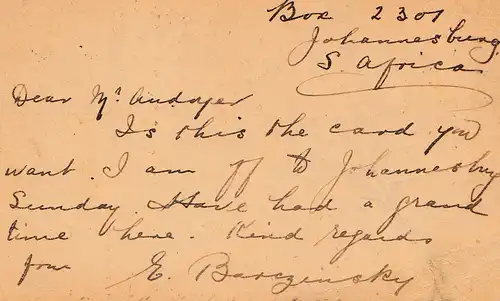 Box 2301
Johannesburg
S. Africa
Dear Mr
Is this the card you
want. I am off to Johannesburg
Sunday. Have had a grand
time here. Kind regards
from E. Barczinsky